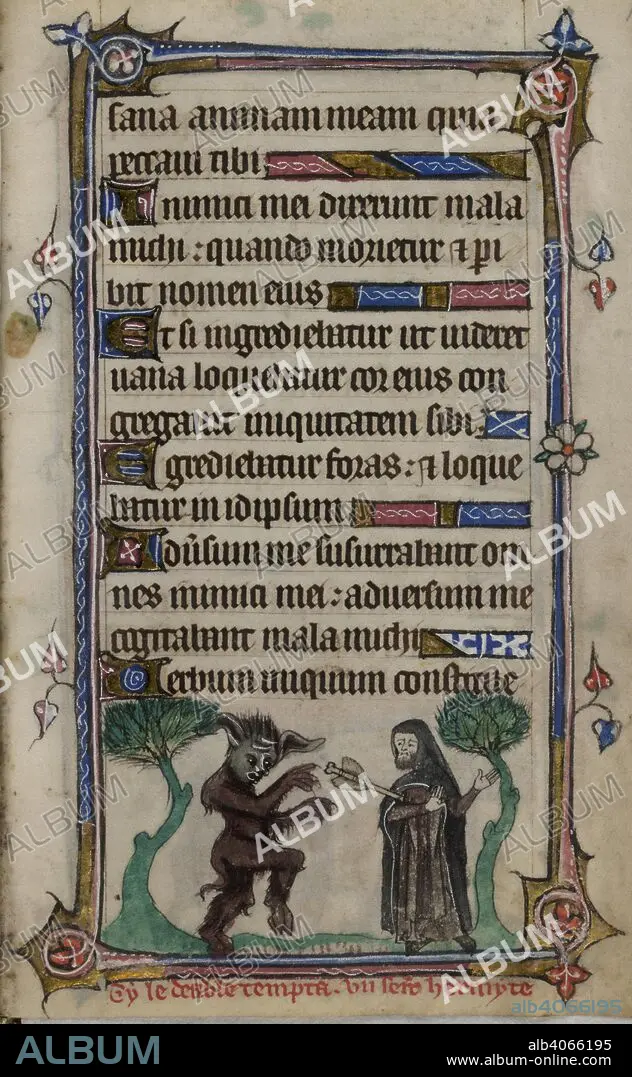 sana animam meam quia
peccaui tibi
Inimici mei dixerunt mala
michi : quando morietur ⁊ pi
bit nomen eius
Et si ingrediebatur ut uideret
uana loquebatur cor eius con
gregauit iniquitatem sibi.
Egrediebatur foras : ⁊ loque
batur in idipsum
Adu̅sum me susurrabant om
nes inimici mei : aduersum me
cogitabant mala michi
Uerbum iniquum constitue
Cy le deable tempta . vn hermyte
alb4066195
ALBUM
alb4066195
www.album-online.com